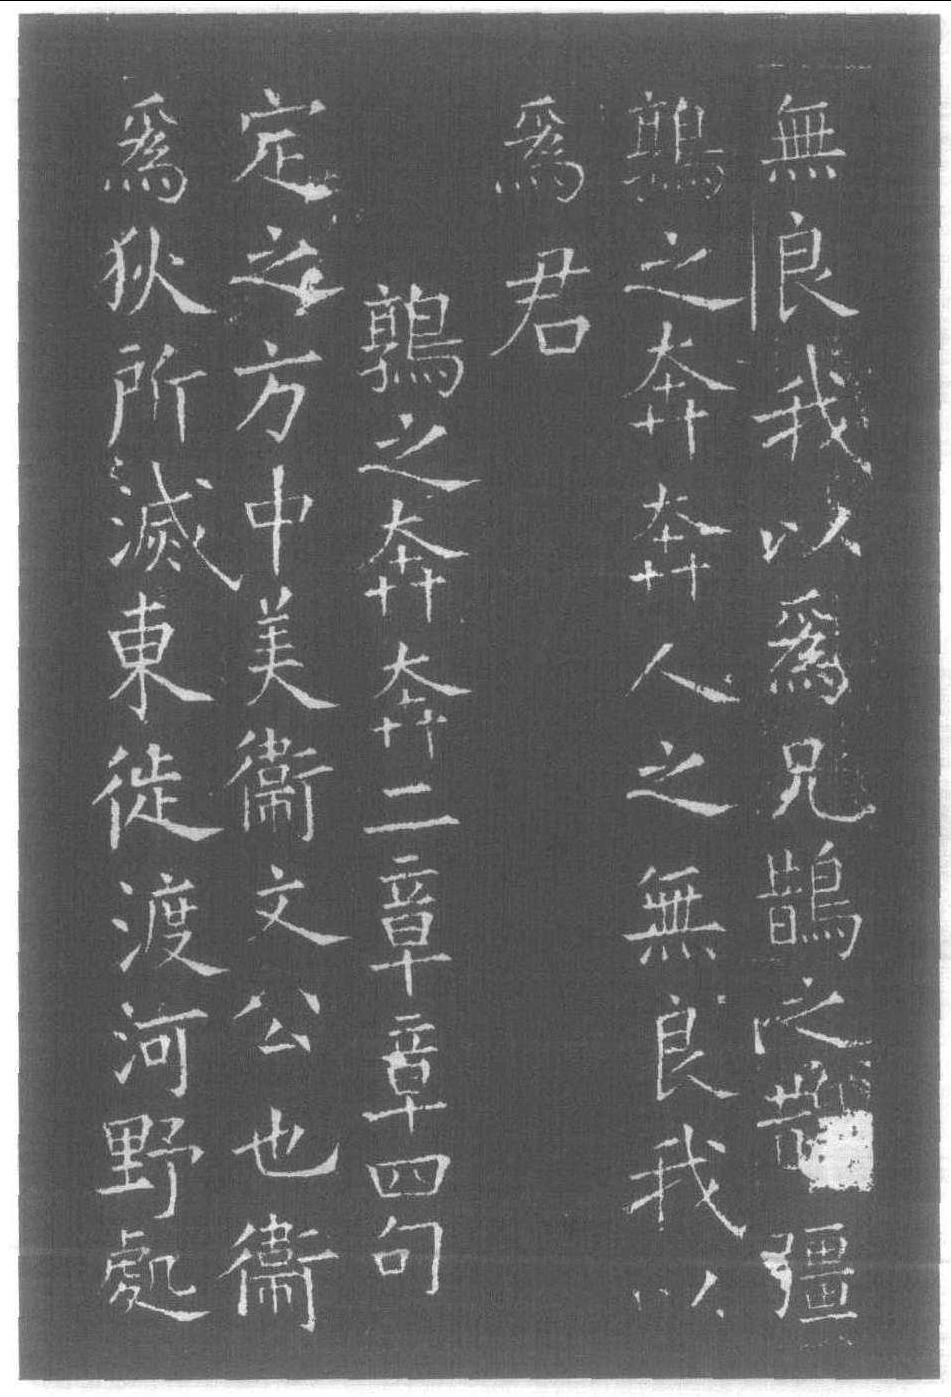 無良我以爲兄鵲之彊
鶉之奔奔人之無良我以
爲君
鶉之奔奔二章章四句
定之方中美衞文公也衞
爲狄所滅東徙渡河野處